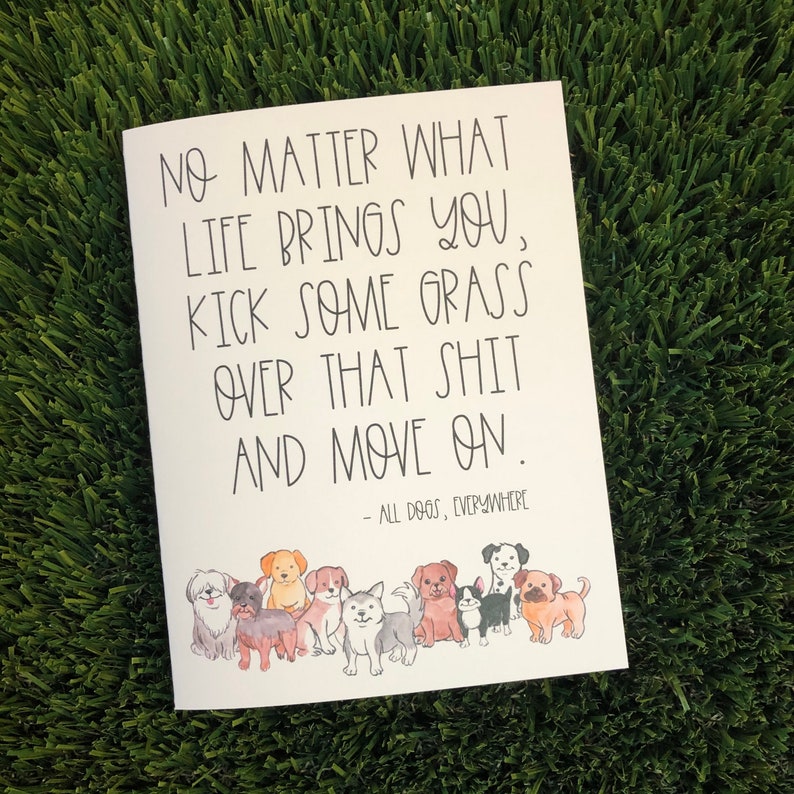 NO MATTER WHAT
LIFE BRINGS YOU,
KICK SOME GRASS
OVER THAT SHIT
AND MOVE ON.
- ALL DOGS, EVERYWHERE